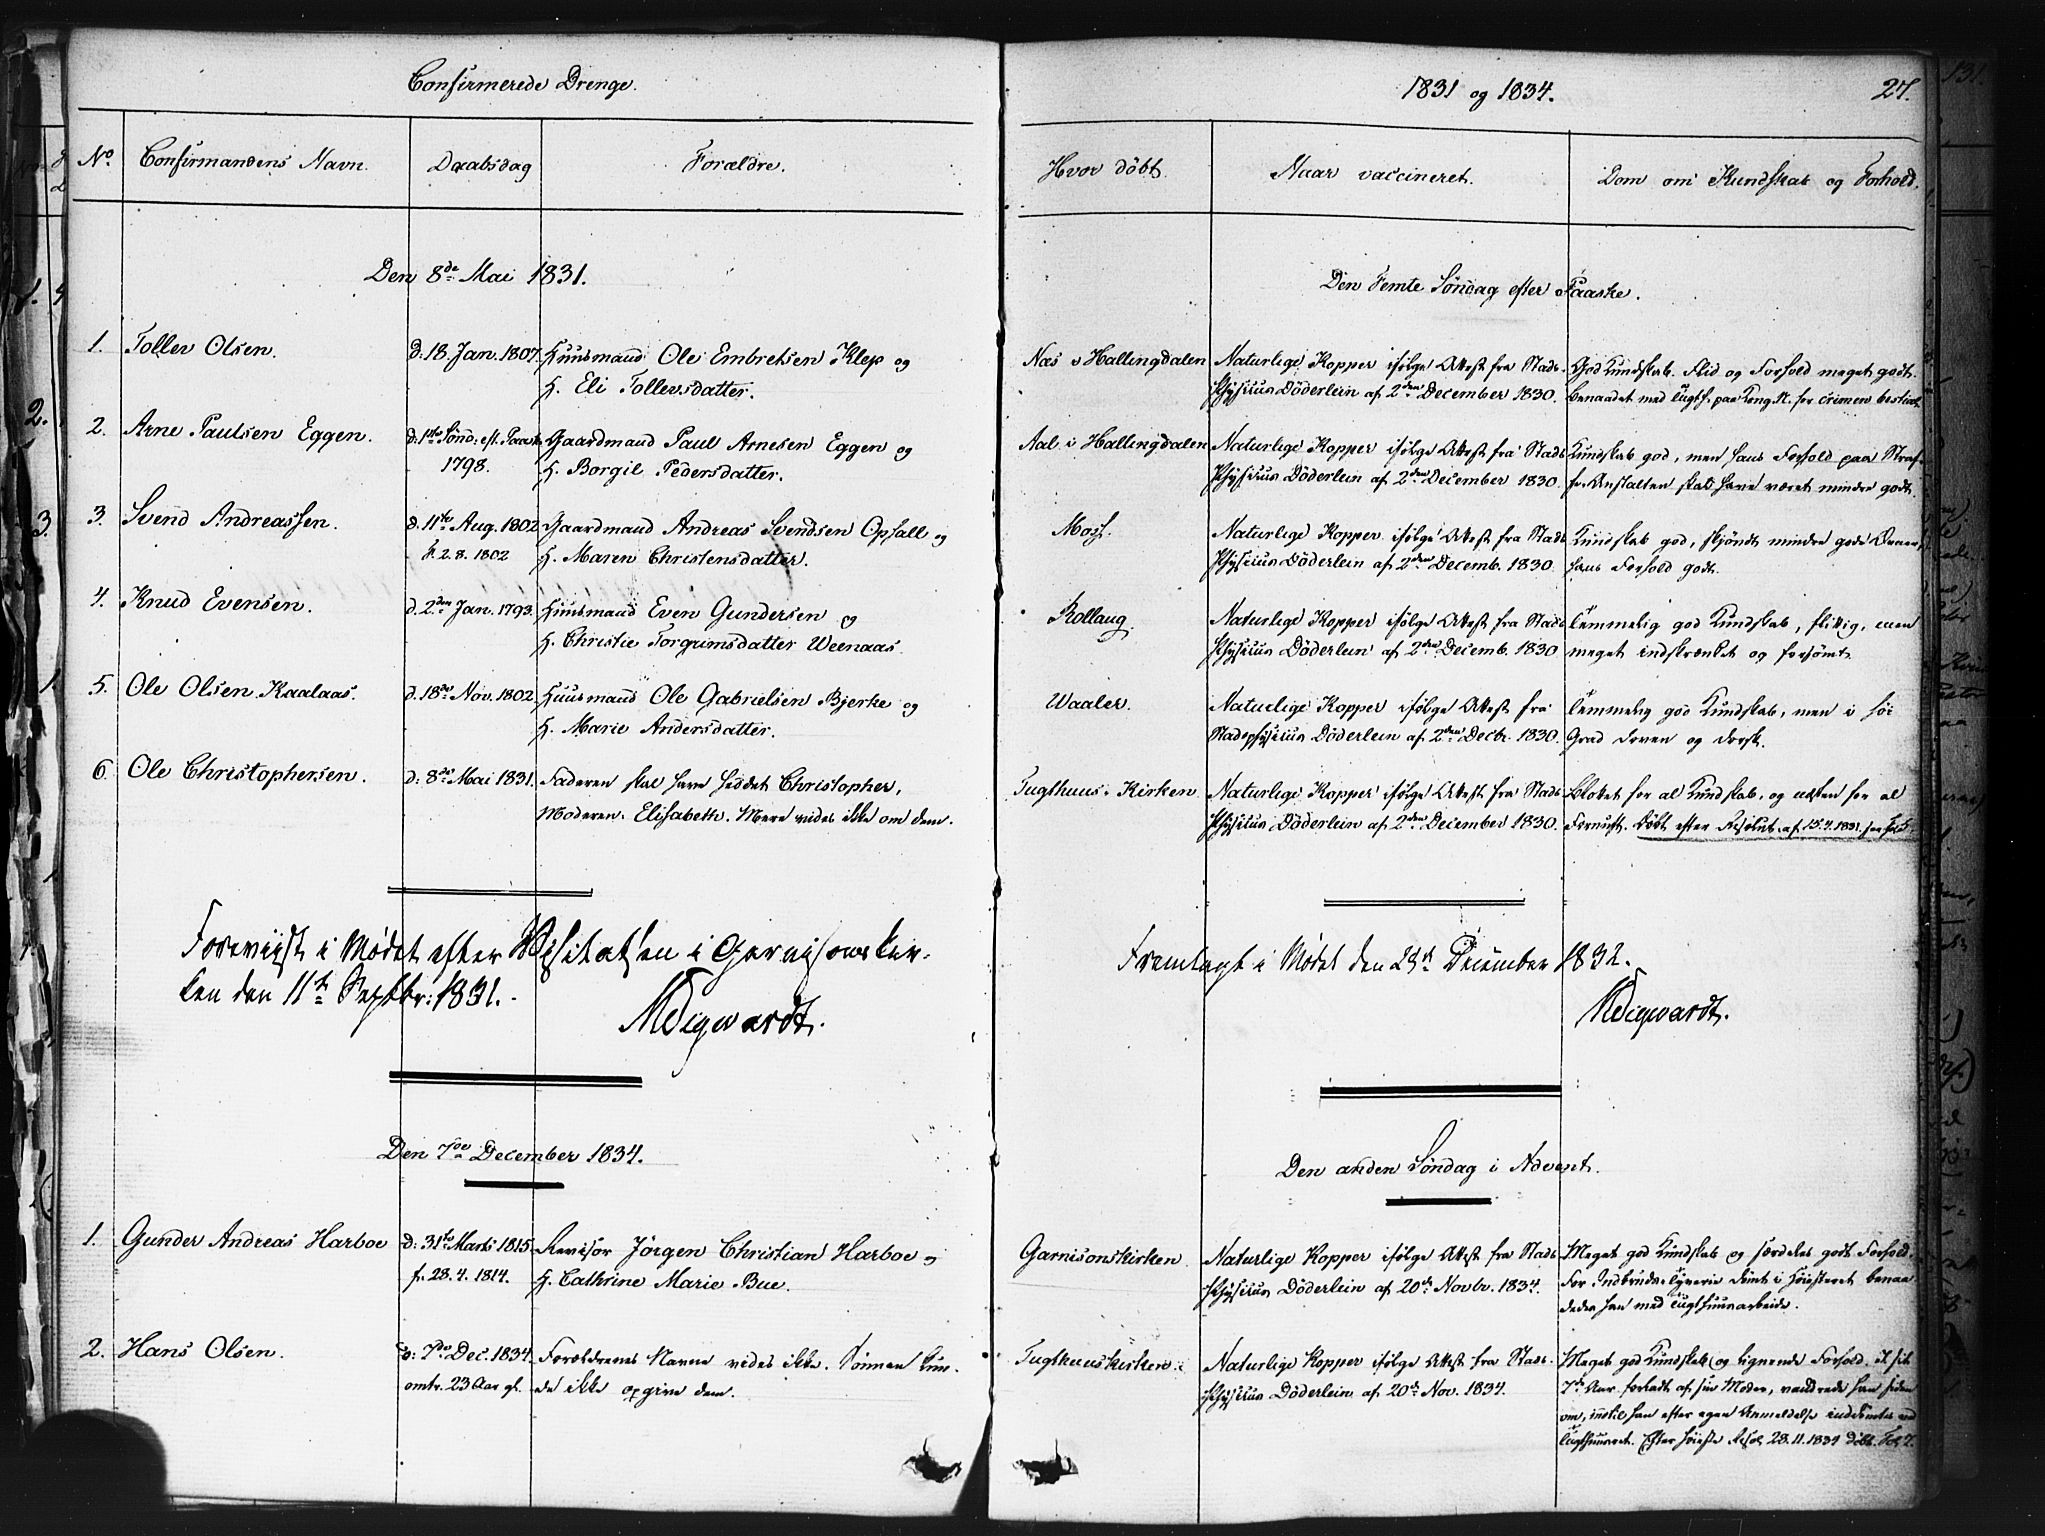 Confirmerede Drenge.
1831 og 1834.
27.
No. Confirmandens Navn. Daabsdag Forældre. Hvor döbt. Naar vaccineret. Dom om Kundskab og Forhold.
Den 8de Mai 1831.
Den Femte Søndag efter Paaske.
1. Tollev Olsen. d: 18. Jan. 1807. Huusmand Ole Embretsen Klep og Næs i Hallingdalen Naturlige Kopper ifølge Attest fra Stads- God Kundskab. Flid og Forhold meget godt.
H. Eli Tollevsdatter. Physicus Döderlein af 2den December 1830. benaadet med Tugth. paa Kong. N. for crimen bestial.
2. Arne Paulsen Eggen. d: 1ste Sønd: eft. Paask. Gaardmand Paul Arnesen Eggen og Aal i Hallingdalen Naturlige Kopper ifølge Attest fra Stads Kundskab god, men hans Forhold paa Straf-
1798. H. Borgil Pedersdatter. Physicus Döderlein af 2den December 1830. fe-Anstalten skal have været mindre godt.
3. Svend Andreassen. d. 11te Aug. 1802 Gaardmand Andreas Svendsen Opsall og Moss. Naturlige Kopper ifølge Attest fra Stads Kundskab god, skjøndt mindre gode Evner,
f. 2. 8. 1802 H. Maren Christensdatter. Physicus Döderlein af 2den Decemb. 1830 hans Forhold godt.
4. Knud Evensen. d. 2den Jan. 1793. Huusmand Even Gundersen og Rollaug. Naturlige Kopper ifølge Attest fra Stads Temmelig god Kundskab, flittig, men
H. Christie Torgrimsdatter Weenaas. Physicus Döderlein af 2den Decemb. 1830 meget indskrænket og forsømt.
5. Ole Olsen Kaalaas. d. 18de Nov. 1802. Huusmand Ole Gabrielsen Bjerke og Waaler. Naturlige Kopper ifølge Attest fra Temmelig god Kundskab, men i høi
H. Marie Andersdatter. Stadsphysicus Döderlein af 2den Decbr. 1830. Grad doven og dorsk.
6. Ole Christophersen. d: 8de Mai 1831. Faderen skal have heddet Christopher, Tugthuus-Kirken Naturlige Kopper ifølge Attest fra Stads Blottet for al Kundskab, og næsten for al
Moderen Elisabeth. Mere vides ikke om dem. Physicus Döderlein af 2den December 1830. Fornuft. Døbt efter Resolut. af 15.4.1831.
Foreviist i Mødet efter Visitatsen i Garnisonskir-
ken den 11te Septbr: 1831.
Fremlagt i Mødet den December 1832.
Den 7de December 1834.
Den anden Søndag i Advent.
1. Gunder Andreas Harboe d: 31te Marts 1815. Revisor Jörgen Christian Harboe og Garnisonskirken Naturlige Kopper ifølge Attest fra Stads Meget god Kundskab og særdeles godt Forhold.
f. 28. 4. 1814. H. Cathrine Marie Bue. Physicus Döderlein af 20de Novbr. 1834. For Indbrudstyverie dömt i Höiesteret benaa-
dedes han med Tugthuusarbeide.
2. Hans Olsen. d: 7de Dec. 1834 Forældrenes Navne vides ikke. Sönnen kun- Tugthuuskirken Naturlige Kopper ifølge Attest fra Stads- Meget god Kundskab og lignende Forhold. I sit
omtr. 23 Aar gl. de ikke opgive dem. Physicus Döderlein af 20de Nov. 1834. 7de Aar forladt af sin Moder, vandrede han siden
om, indtil han efter egen Anmeldelse inddømtes ved
Tugthuusret. Efter høieste Resol. 28.11.1834 döbt.